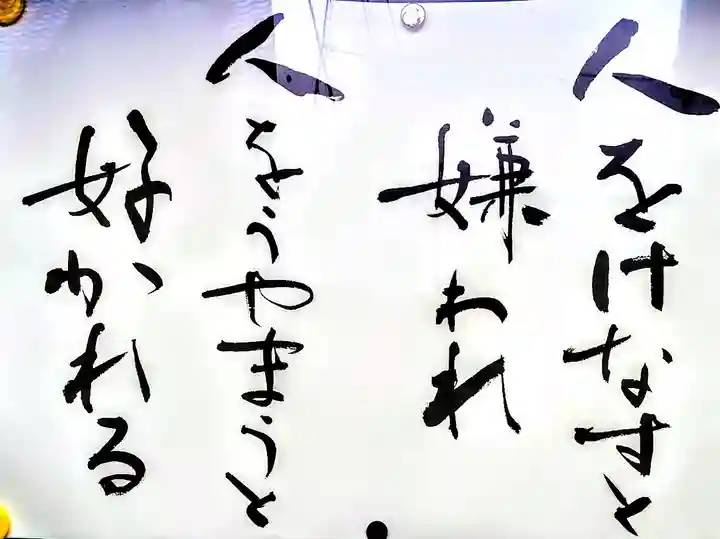 人をけなすと
嫌われ
人をうやまうと
好かれる